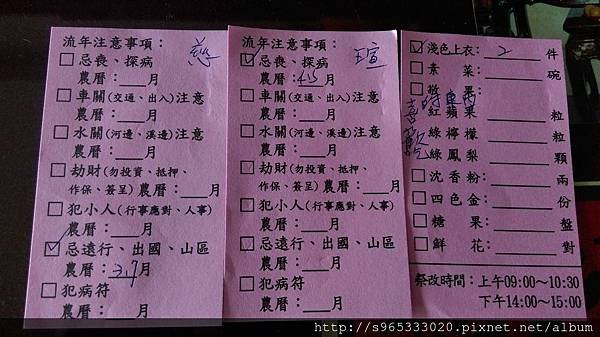 流年注意事項：
☑忌喪、探病
農曆：___月
□車關(交通、出入)注意
農曆：___月
□水關(河邊、溪邊)注意
農曆：___月
□劫財(勿投資、抵押、
作保、簽呈)農曆：___月
□犯小人(行事應對、人事)
農曆：___月
☑忌遠行、出國、山區
農曆：3.9月
□犯病符
農曆：___月
流年注意事項：
瑄
☑忌喪、探病
農曆：月
□車關(交通、出入)注意
農曆：___月
□水關(河邊、溪邊)注意
農曆：___月
□劫財(勿投資、抵押、
作保、簽呈)農曆：___月
□犯小人(行事應對、人事)
農曆：___月
☑忌遠行、出國、山區
農曆：___月
□犯病符
農曆：___月
☑淺色上衣：2件
□素菜：___碗
□敬果：
紅蘋果___粒
綠檸檬___粒
綠鳳梨___顆
□沈香粉：___兩
□四色金：___份
□糖果：___盤
□鮮花：___對
祭改時間：上午09:00～10:30
下午14:00～15:00
http://s965333020.pixnet.net/album